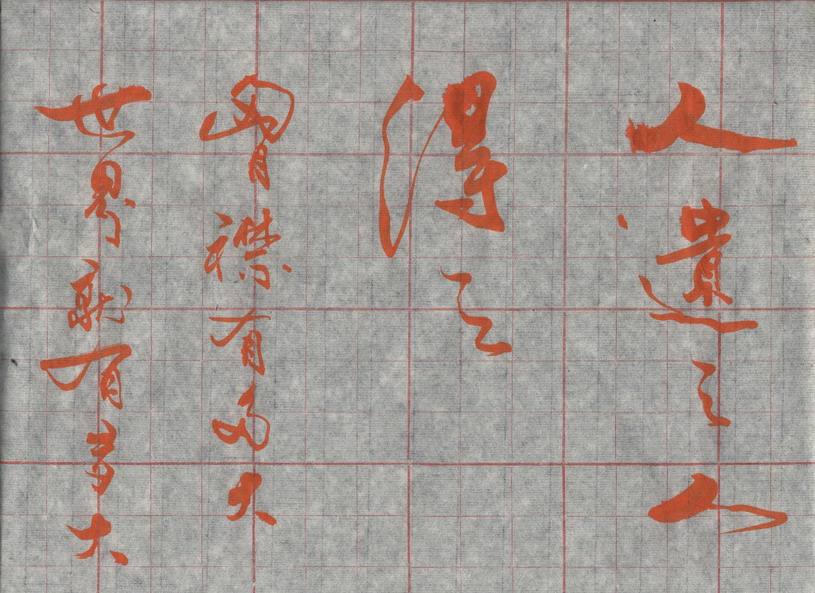 人遺之人
得之
胷襟有多大
世界就有多大